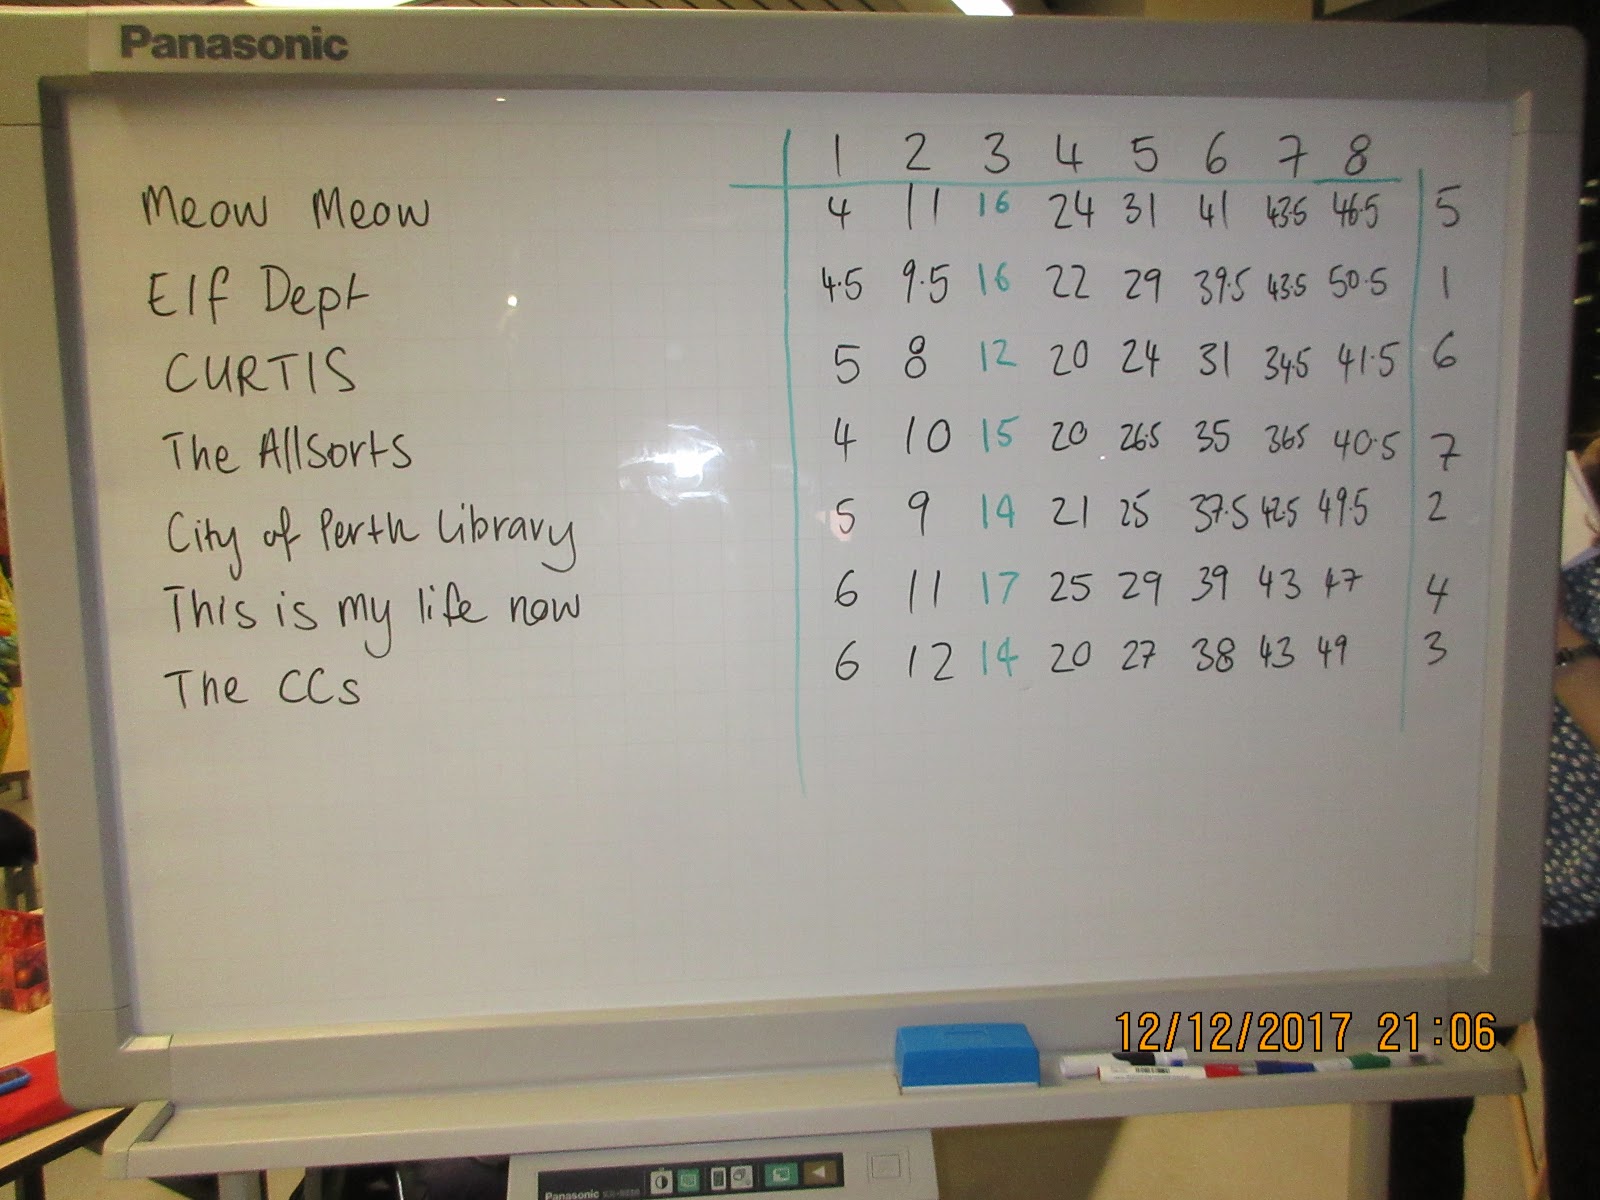 Panasonic
1 2 3 4 5 6 7 8
Meow Meow 4 11 16 24 31 41 43.5 46.5 5
Elf Dept 4.5 9.5 16 22 29 39.5 43.5 50.5 1
CURTIS 5 8 12 20 24 31 34.5 41.5 6
The Allsorts 4 10 15 20 26.5 35 36.5 40.5 7
City of Perth Library 5 9 14 21 25 37.5 42.5 49.5 2
This is my life now 6 11 17 25 29 39 43 47 4
The CCs 6 12 14 20 27 38 43 49 3
12/12/2017 21:06
Panasonic